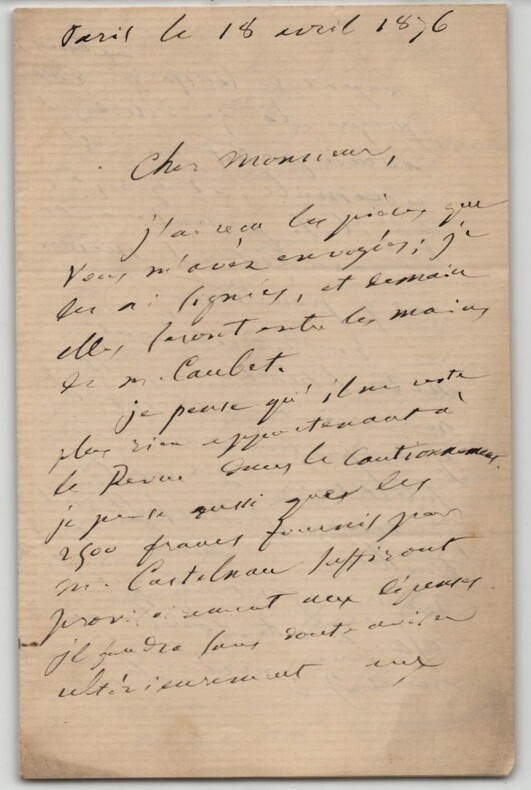 Paris le 18 avril 1876
Cher Monsieur,
j'ai reçu les pièces que
Vous m'avez envoyées; je
les ai signées, et demain
elles seront entre les mains
de m. Caubet.
je pense qu'il ne reste
plus rien appartenant à
la Revue dans le cautionnement.
je pense aussi que les
2500 francs fournis par
m. Castelnau suffiront
provisoirement aux dépenses
il faudra sans doute aviser
ultérieurement aux